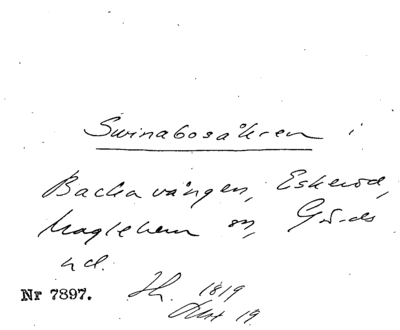 Swinabosåkren i
Backavången, Eskeröd,
Maglehem sn, Gärds
hd.
Nr 7897. Sk. 1819
Akt 19.